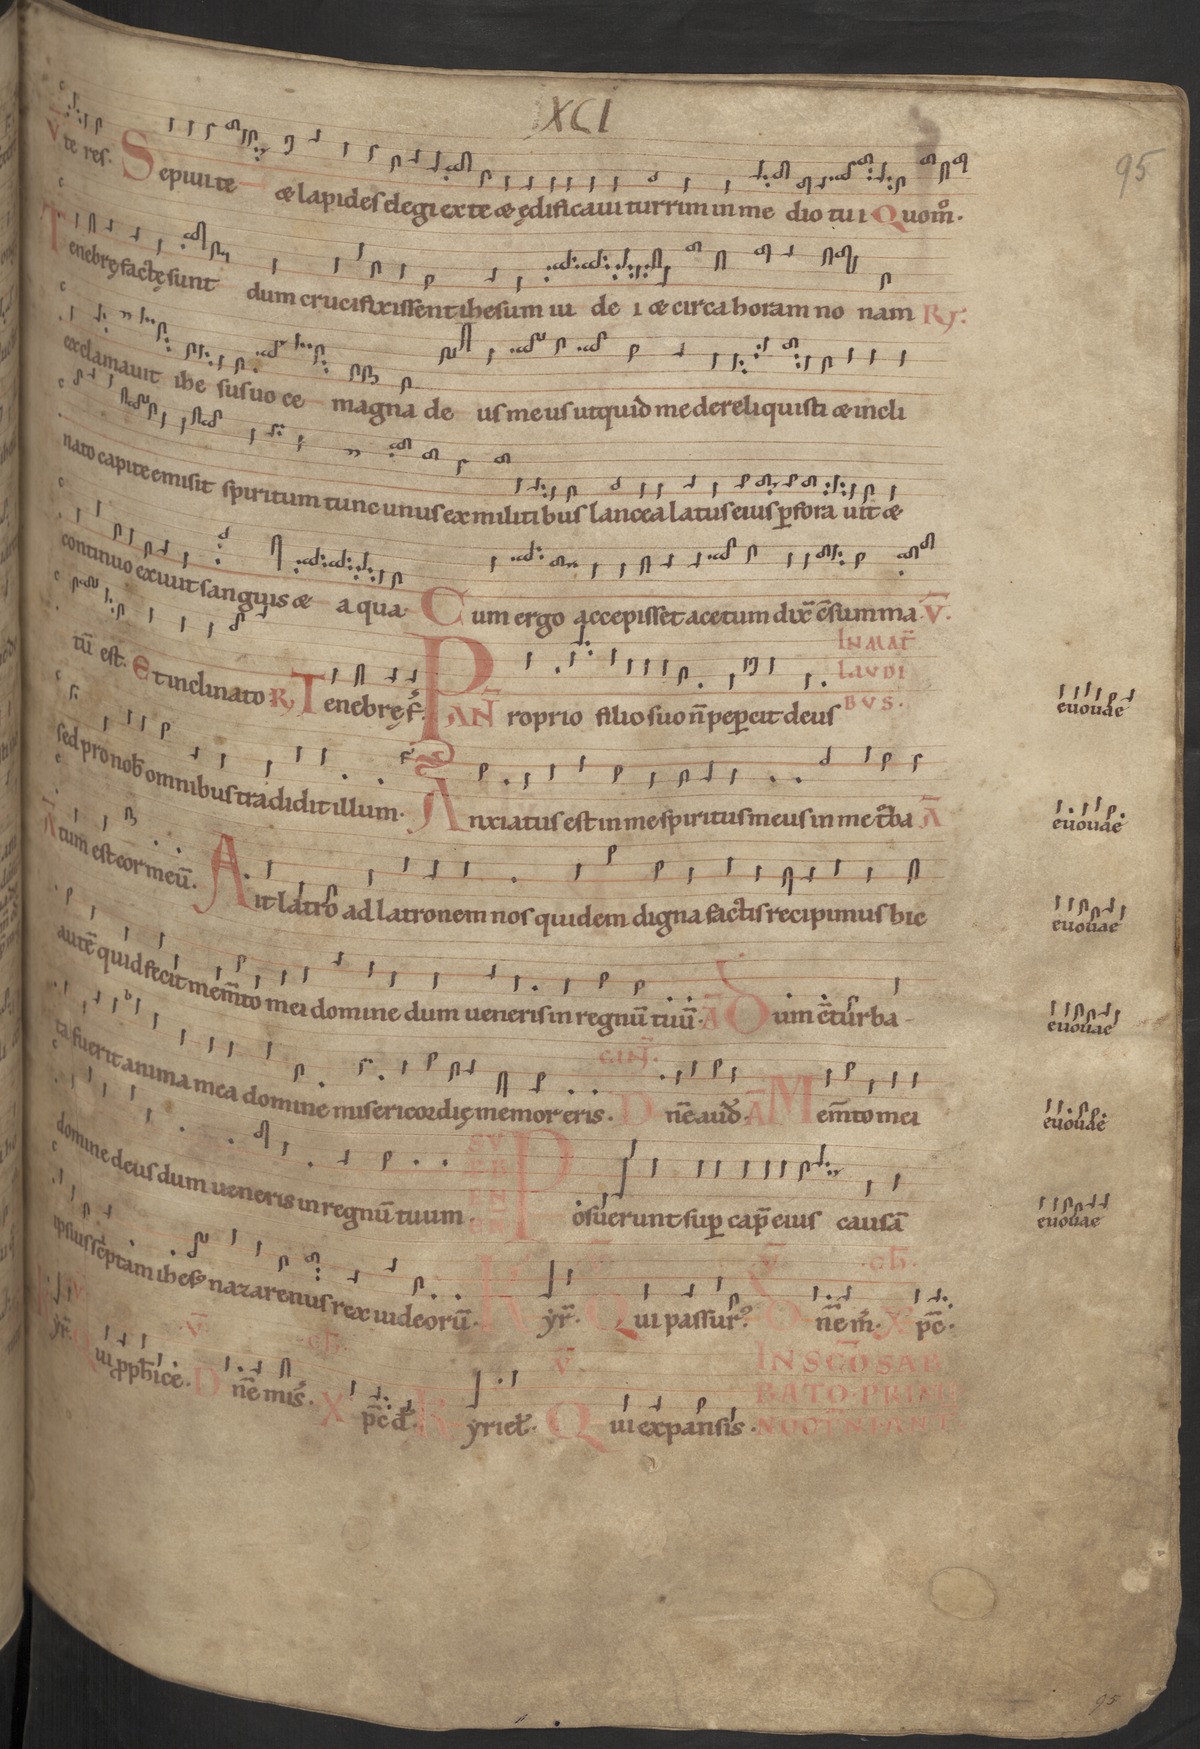 XCI
95
V te res. Sepiui te & lapides elegi ex te & ędificaui turrim in me dio tu i Quom̄.
Tenebrę factę sunt dum crucifixissent ihesum iu de i & circa horam no nam R.
exclamauit ihe sus uo ce magna de us meus utquid me dereliquisti & incli
nato capite emisit spiritum tunc unus ex militibus lancea latus eius pfora uit &
continuo exiuit sanguis & a qua Cum ergo accepisset acetum dix̄ c̄summa V̄.
tū est. Et inclinato R Tenebrę f. AN̄ Proprio filio suo n̄ pepercit deus IN MAT̄ LAVDIBVS. euouae
sed pro nob omnibus tradidit illum. Anxiatus est in me spiritus meus in me t̄ba Ā euouae
tum est cor meū. Ait latro ad latronem nos quidem digna factis recipimus hic euouae
autē quid fecit mem̄to mei domine dum ueneris in regnū tuū. Ā Dum c̄turba- euouae
ta fuerit anima mea domine misericordię memor eris. CAN̄. Dn̄e aud. Ā Mem̄to mei euouae
domine deus dum ueneris in regnū tuum. Posuerunt sup cap̄ eius causā euouae
ipsius sc̄ptam ihes nazarenus rex iudeorū. Kyr̄. Qui passur. Dn̄e m̄. Xp̄c.
yr̄. Qui pph̄ice. V̄ Dn̄e mis. Xp̄c d. Kyriel. V̄ Qui expansis. IN SC̄O SAB
BATO PRIM
NOCT̄N ANT
95